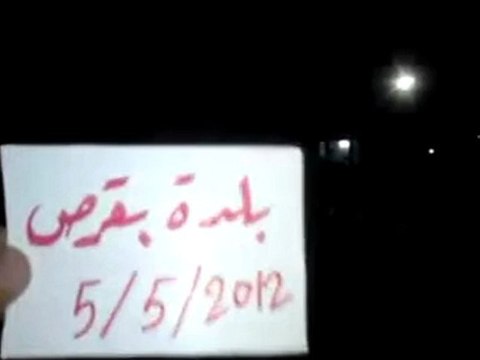 بلدة بقرص
5/5/2012